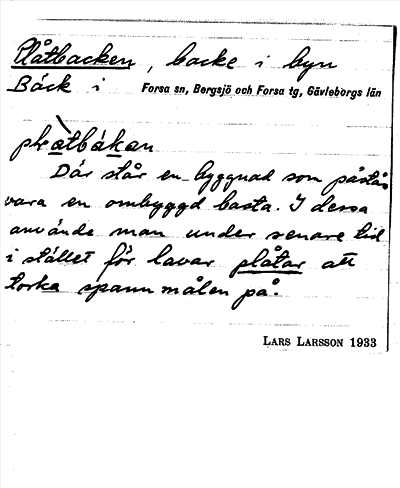 Plåtbacken, backe i byn
Bäck i Forsa sn, Bergsjö och Forsa tg, Gävleborgs län
plàtbákan
Där står en byggnad som påstås
vara en ombyggd basta. I dessa
använde man under senare tid
i stället för lavar plåtar att
torka spannmålen på.
LARS LARSSON 1933